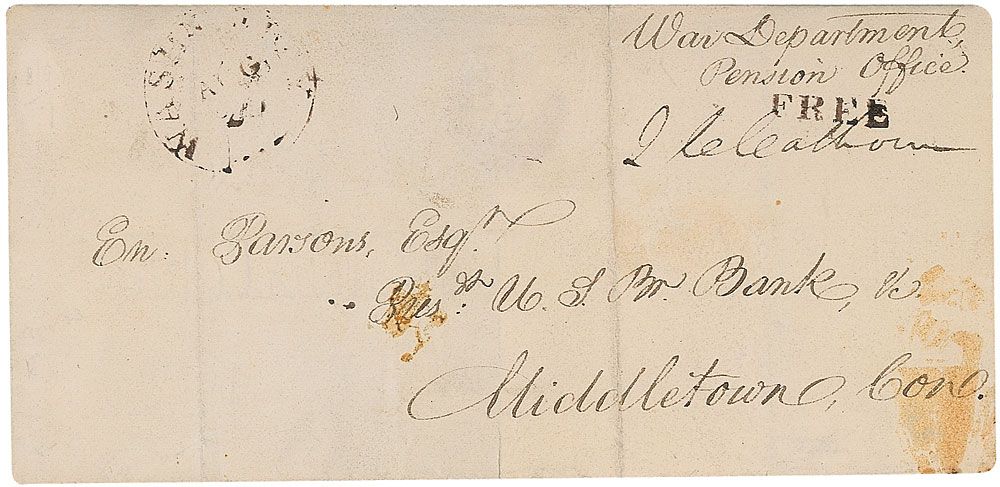 WASHIN
AUG
War Department,
Pension Office.
FREE
J C Calhoun
En: Parsons, Esqr.
Presdt: U. S. Br. Bank, &c.
Middletown, Con.